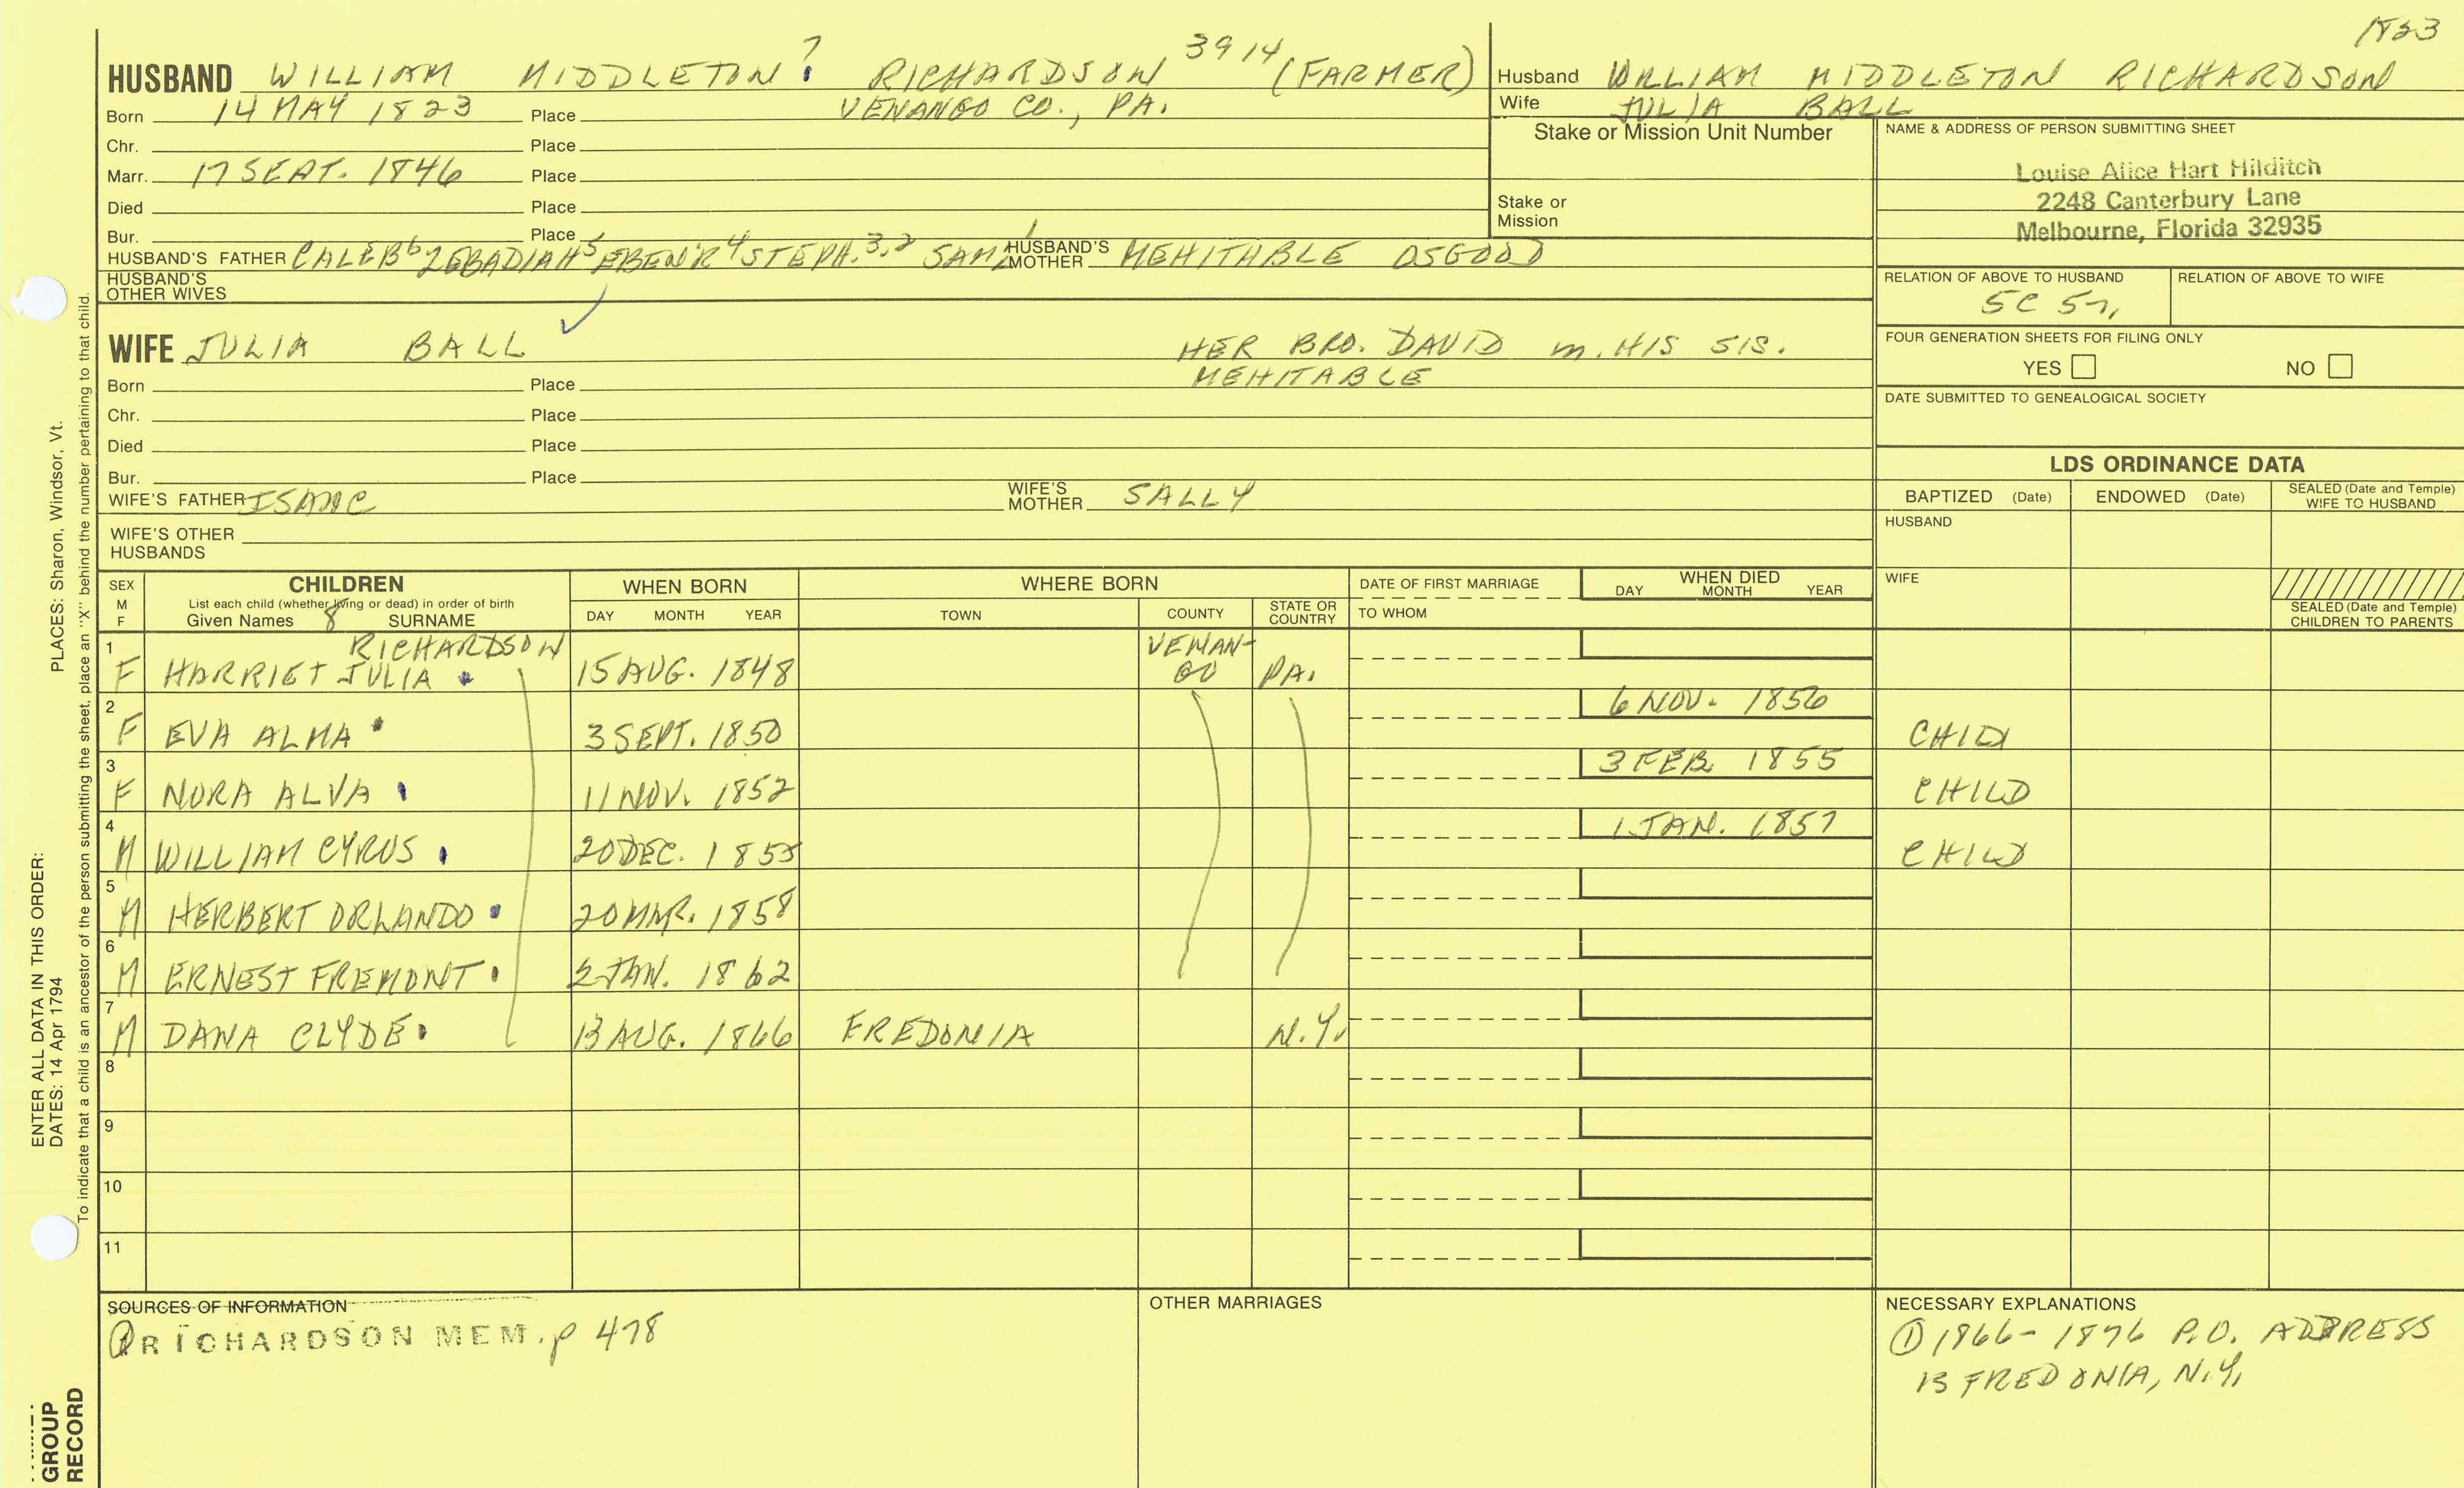 1823
HUSBAND WILLIAM MIDDLETON 7 RICHARDSON 3914 (FARMER)
Born 14 MAY 1823 Place VENANGO CO., PA.
Chr. Place
Marr. 17 SEPT. 1846 Place
Died Place
Bur. Place
HUSBAND'S FATHER CALEB 6 ZEBADIAH 5 EBEN'R 4 STEPH. 3,2 SAM'L 1 HUSBAND'S MOTHER MEHITABLE OSGOOD
HUSBAND'S OTHER WIVES
Husband WILLIAM MIDDLETON RICHARDSON
Wife JULIA BALL
Stake or Mission Unit Number
Stake or
Mission
NAME & ADDRESS OF PERSON SUBMITTING SHEET
Louise Alice Hart Hilditch
2248 Canterbury Lane
Melbourne, Florida 32935
RELATION OF ABOVE TO HUSBAND
RELATION OF ABOVE TO WIFE
5C 5
FOUR GENERATION SHEETS FOR FILING ONLY
YES NO
DATE SUBMITTED TO GENEALOGICAL SOCIETY
WIFE JULIA BALL HER BRO. DAVID m. HIS SIS.
MEHITABLE
Born Place
Chr. Place
Died Place
Bur. Place
WIFE'S FATHER ISAAC WIFE'S MOTHER SALLY
WIFE'S OTHER
HUSBANDS
LDS ORDINANCE DATA
BAPTIZED (Date) ENDOWED (Date) SEALED (Date and Temple) WIFE TO HUSBAND
HUSBAND
WIFE
SEALED (Date and Temple)
CHILDREN TO PARENTS
SEX M F CHILDREN WHEN BORN WHERE BORN DATE OF FIRST MARRIAGE WHEN DIED
List each child (whether living or dead) in order of birth
Given Names 8 SURNAME DAY MONTH YEAR TOWN COUNTY STATE OR COUNTRY TO WHOM DAY MONTH YEAR
RICHARDSON
1 F HARRIET JULIA 15 AUG. 1848 VENANGO PA.
2 F EVA ALMA 3 SEPT. 1850 6 NOV. 1856 CHILD
3 F NORA ALVA 11 NOV. 1852 3 FEB. 1855 CHILD
4 M WILLIAM CYRUS 20 DEC. 1855 1 JAN. 1857 CHILD
5 M HERBERT ORLANDO 20 MAR. 1858
6 M ERNEST FREMONT 2 JAN. 1862
7 M DANA CLYDE 13 AUG. 1866 FREDONIA N.Y.
8
9
10
11
SOURCES OF INFORMATION
① RICHARDSON MEM. p 478
OTHER MARRIAGES
NECESSARY EXPLANATIONS
① 1866-1876 P.O. ADDRESS
IS FREDONIA, N.Y.
ENTER ALL DATA IN THIS ORDER:
DATES: 14 Apr 1794 PLACES: Sharon, Windsor, Vt.
To indicate that a child is an ancestor of the person submitting the sheet, place an "X" behind the number pertaining to that child.
GROUP
RECORD